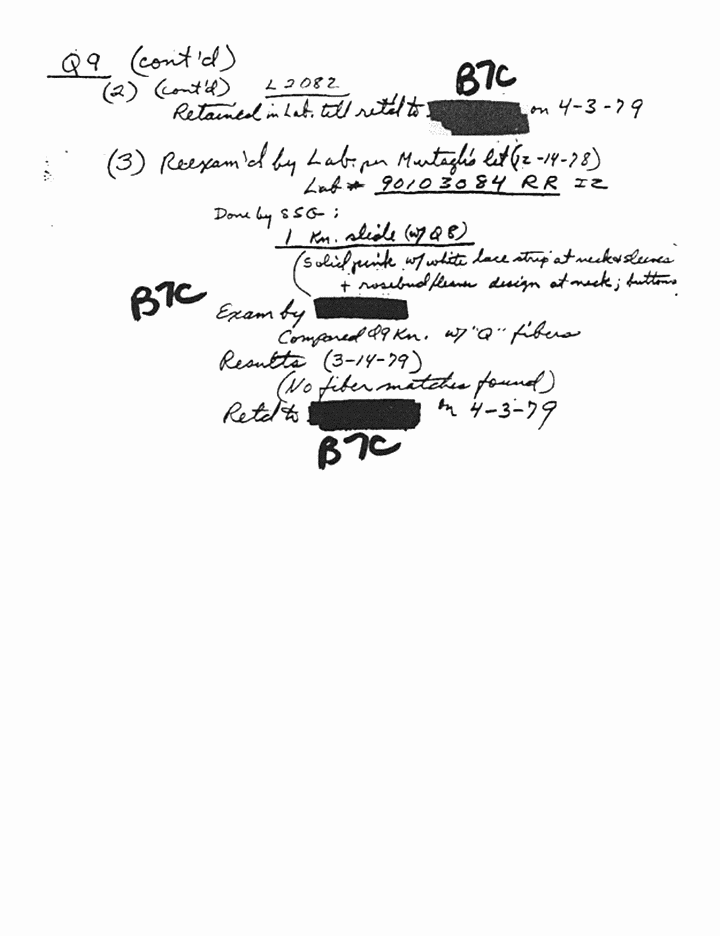 Q9 (cont'd)
B7C
(2) (cont'd) L2082
Retained in Lab. till retd to on 4-3-79
(3) Reexam'd by Lab. per Murtagh's let (12-14-78)
Lab # 90103084 RR IZ
Done by SSG:
1 Kn. slide (w/ Q8)
(solid pink w/ white lace strip at neck & sleeves
+ rosebud flower design at neck; buttons
B7C
Exam by
Compared Q9 Kn. w/ "Q" fibers
Results (3-14-79)
(No fiber matches found)
Retd to on 4-3-79
B7C